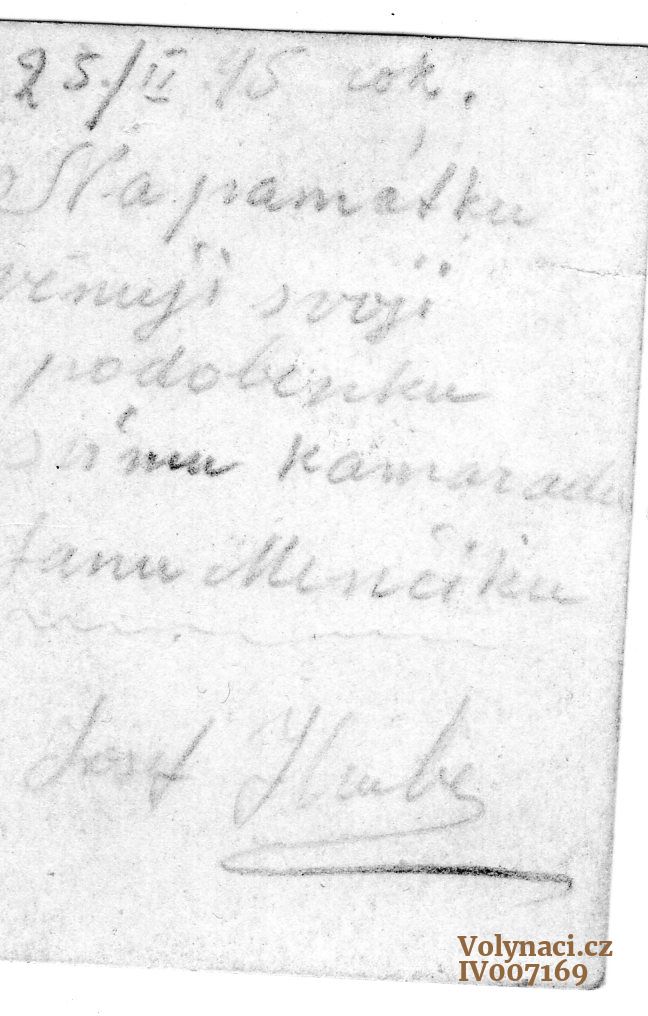 23./II 45 rok.
Na památku
věnuji svoji
podobenku
svému kamaradu
Janu Menčíku
Josef Hrubý
Volynaci.cz
IV007169